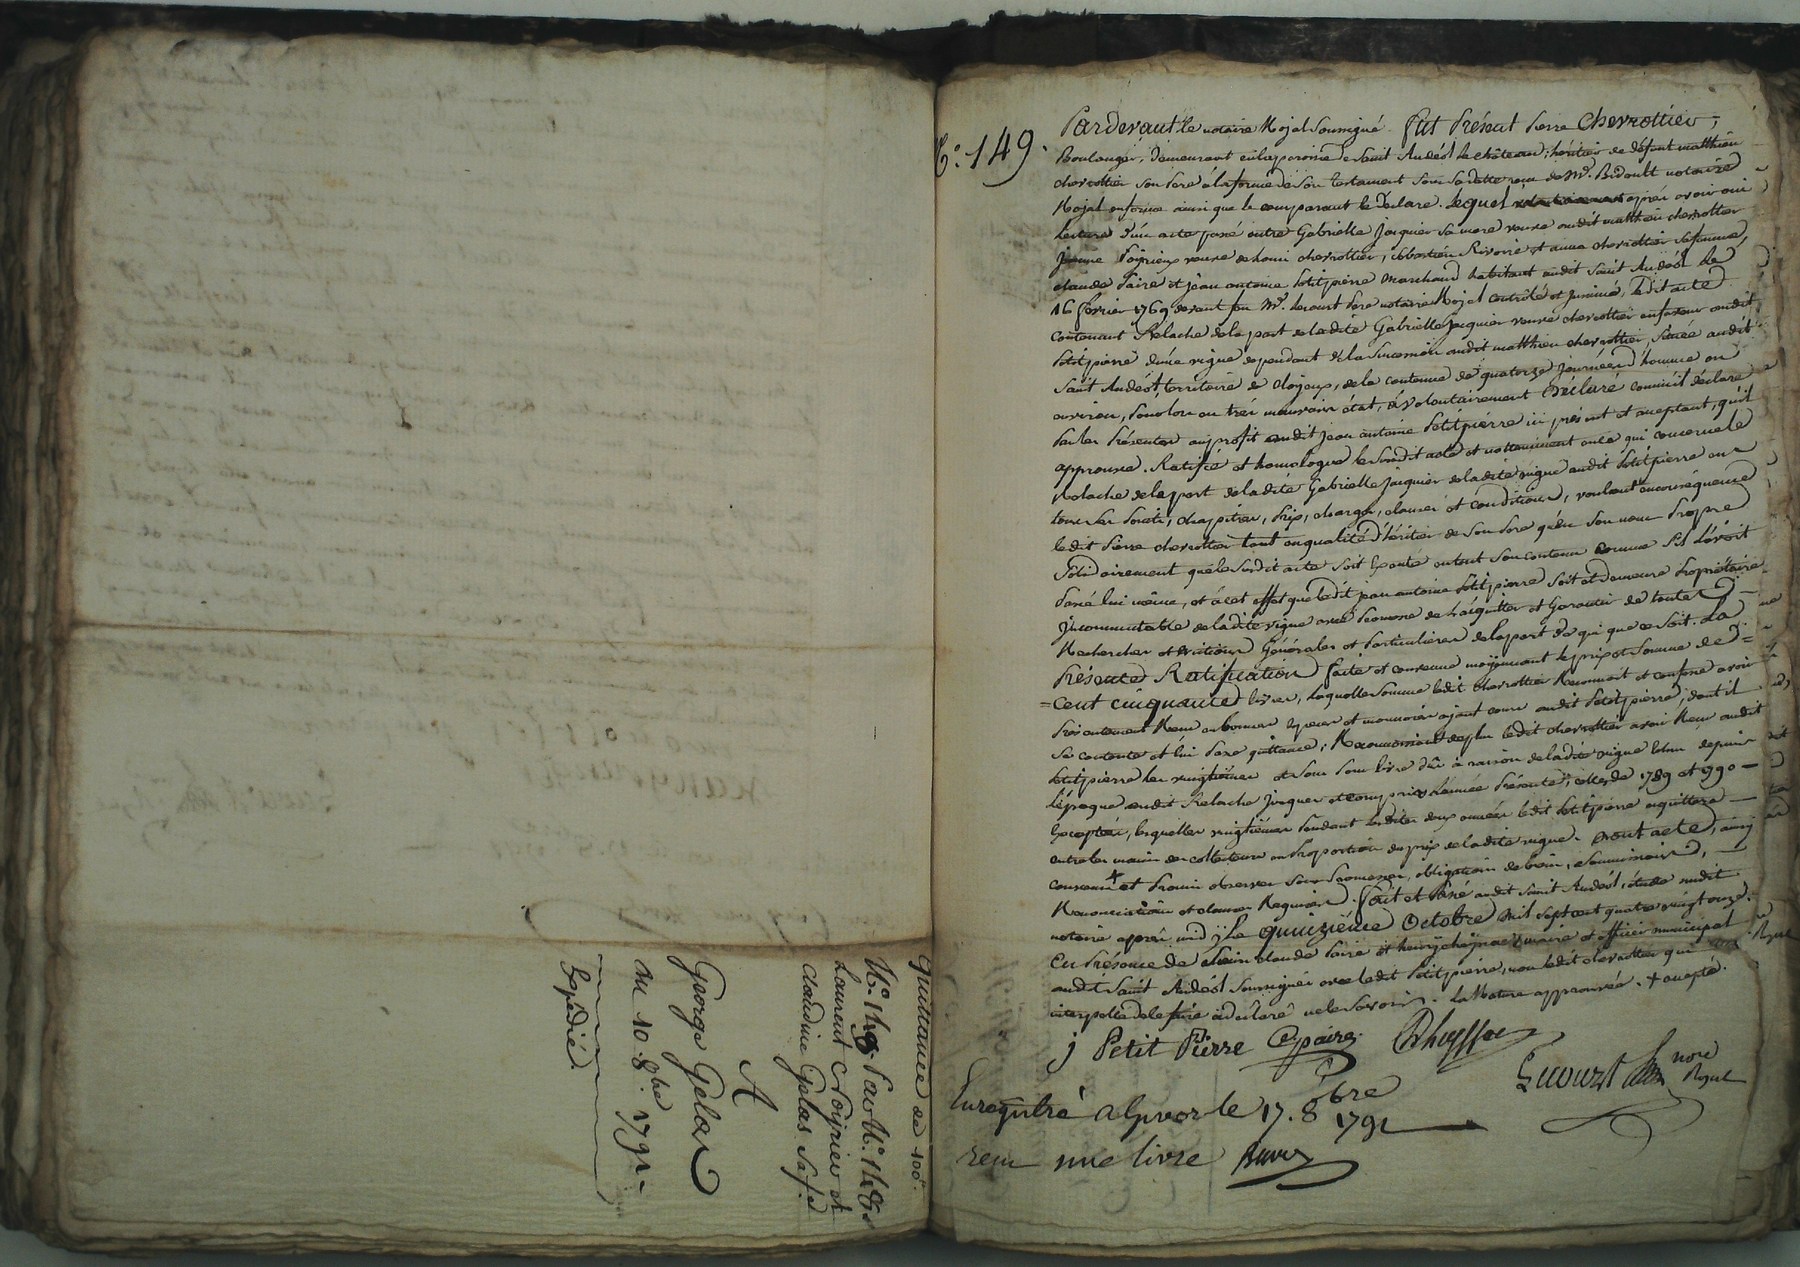 quittance de 100#.
N.° 149. Par N.° 148.
Laurent Noijrier et
Claudine Gelas Sa fe
A
George Gelas
du 10. 8.bre 1791
Expédié
N.° 149.
Pardevant le notaire Royal Soussigné. fut Présent Pierre Chevrottier,
Boulanger, demeurant en la paroisse de Saint Andéol le château, héritier de défunt matthieu
chevrottier son Pere à la forme de son testament sous sa datte reçu de Mr. Bidoult notaire
Royal en forme ainsi que le comparant le déclare. Lequel après avoir oui
lecture d'un acte passé entre Gabrielle Jaquier sa mere veuve audit matthieu chevrottier
Jeanne veuve de chevrottier, sébastien Rivoire et anne chevrottier sa femme,
claude Paire et jean antoine Petitpierre marchand habitant audit Saint Andéol le
16 février 1769 devant feu Mr. Lecourt Pere notaire Royal contrôlé et jnsinué, Ledit acte
contenant Relache de la part de ladite Gabrielle Jaquier veuve chevrottier en faveur audit
Petitpierre d'une vigne dependant de la Succession audit matthieu chevrottier, située audit
Saint Andéol, territoire de clojoux, de la contenue de quatorze journées d'homme ou
environ, Pour lors en très mauvais état, à volontairement Déclaré comme il déclare
Par les Présentes au profit audit jean antoine Petitpierre ici présent et acceptant, qu'il
approuve. Ratifie et homologue le Susdit acte et nottamment en ce qui concerne le
Relache de la part de ladite Gabrielle Jaquier de ladite vigne audit Petitpierre en
tous ses Points, chapitres, Prix, charges, clauses et conditions, voulant en conséquence
ledit Pierre chevrottier tant en qualité d'héritier de son Pere qu'en son nom Propre
Solidairement que le Susdit acte Soit Exécuté en tout Son contenu comme S'il L'avoit
Passé lui même, et à cet effet que ledit jean antoine Petitpierre Soit et demeure Propriétaire
Jncommutable de ladite vigne avec Promesse de L'acquitter et Garantir de toutes
Recherches et Evictions Générales et Particulieres de la part de qui que ce Soit. La
Présente Ratification faite et convenue moyennant le prix et Somme de =
= Cent cinquante livres, Laquelle Somme ledit chevrottier Reconnoit et confesse avoir
Présentement Reçu en bonnes Especes et monnoies ajant cours audit Petitpierre, dont il
Se contente et lui Passe quittance; Reconnoissant de plus ledit chevrottier avoir Reçu audit
Petitpierre les vingtiemes et Sous Pour livre dûs à raison de ladite vigne depuis
L'époque audit Relache jusques et compris L'année Présente, celles de 1789 et 1790 —
Exceptées, lesquelles vingtièmes Pendant lesdites deux années ledit Petitpierre acquittera —
entre les mains des collecteurs en Proportion du prix de ladite vigne. Dont acte, ainsi
convenu + et Promis observer Sous Promesses, obligation de biens, Soumissions, —
Renonciations et clauses Requises. Fait et Passé audit Saint Andéol, étude audit
notaire après midj Le quinzième Octobre Mil Sept cent quatre vingt onze.
En Présence de claude Paire et maire et officier municipal
audit Saint Andéol Soussignés avec ledit Petitpierre, non ledit chevrottier qui
interpellé de le faire à déclaré ne le Savoir. La Rature approuvée. + accepté.
j Petit Pierre C paire
Lecourt nore Royal
Enregistré a Givors le 17. 8bre 1791
reçu une livre